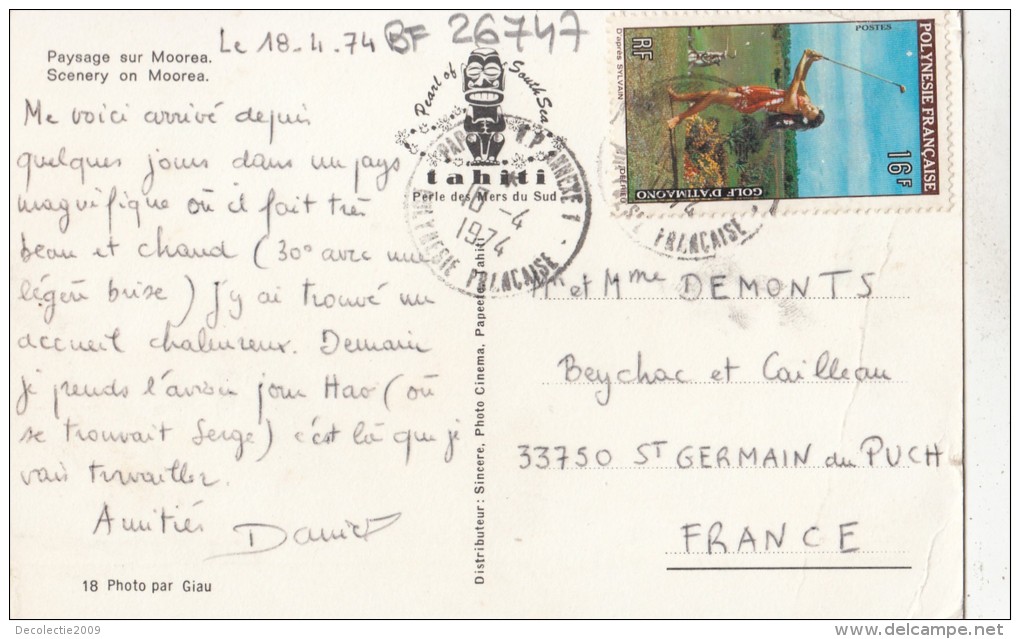 Le 18-4.74 BF 26747
Paysage sur Moorea.
Scenery on Moorea.
Me voici arrivé depuis
quelques jours dans un pays
magnifique où il fait très
beau et chaud (30° avec une
légère brise) J'y ai trouvé un
accueil chaleureux. Demain
je prends l'avion pour Hao (où
se trouvait Serge) c'est là que je
vais travailler.
Amitiés
Daniel
18 Photo par Giau
Pearl of South Sea
tahiti
Perle des Mers du Sud
R.P ANNEXE 1
18 -4
1974
POLYNESIE FRANCAISE
Distributeur: Sincere, Photo Cinema, Papeete, Tahiti
POSTES
POLYNESIE FRANÇAISE
16F
RF
D'après SYLVAIN
GOLF D'ATIMAONO
FRANCAISE
Mr et Mme DEMONTS
Beychac et Cailleau
33750 ST GERMAIN du PUCH
FRANCE
Decolectie2009
www.delcampe.net